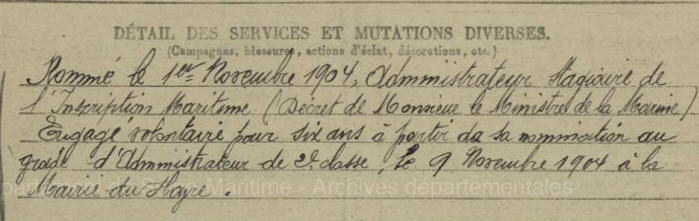 DÉTAIL DES SERVICES ET MUTATIONS DIVERSES.
(Campagnes, blessures, actions d'éclat, décorations, etc.)
Nommé le 1er Novembre 1904, Administrateur Stagiaire de
l'Inscription Maritime (Décret de Monsieur le Ministre de la Marine)
Engagé volontaire pour six ans à partir da sa nomination au
grade d'Administrateur de 2e classe, le 9 Novembre 1904 à la
Mairie du Havre.
Maritime - Archives départementales